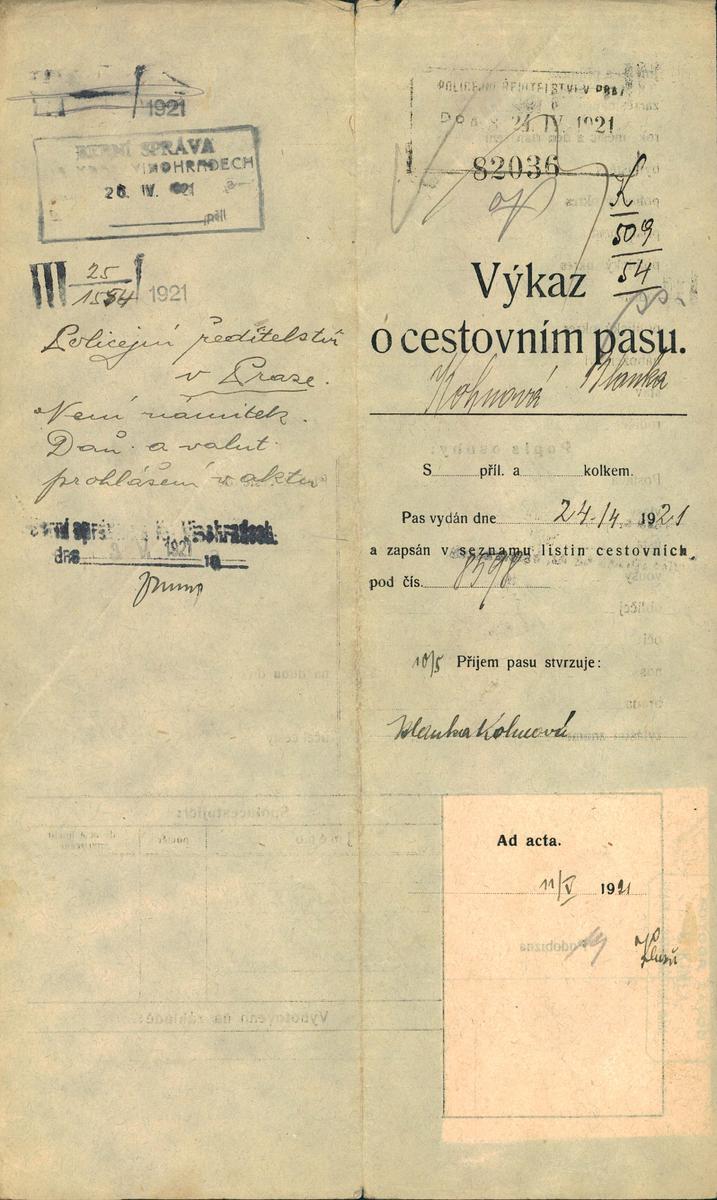 1921
BERNÍ SPRÁVA
VINOHRADECH
26. IV. 1921
příl.
III 25/1554 1921
Policejní ředitelství
v Praze.
Není námitek.
Daň. a valut.
prohlášení v aktu
Vinohradech.
dne 1921 19
POLICEJNÍ ŘEDITELSTVÍ V PRAZE
Došlo 24. IV. 1921
82036
K
509
54
Výkaz
o cestovním pasu.
Kohnová Blanka
S příl. a kolkem.
Pas vydán dne 24./4. 1921
a zapsán v seznamu listin cestovních
pod čís. 8598
10/5 Příjem pasu stvrzuje:
Blanka Kohnová
Ad acta.
11/V 1921